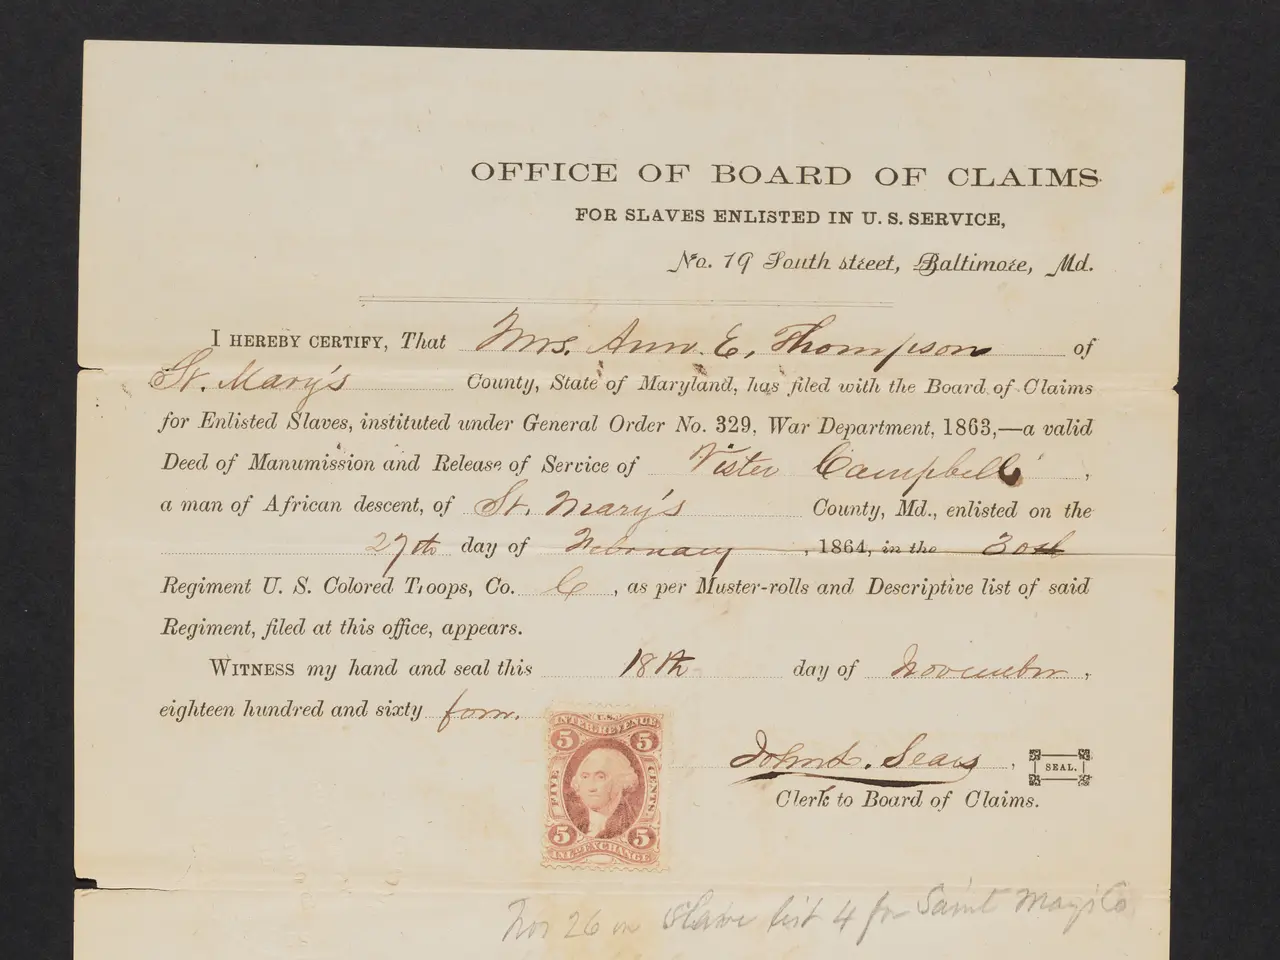 OFFICE OF BOARD OF CLAIMS
FOR SLAVES ENLISTED IN U. S. SERVICE,
No. 19 South street, Baltimore, Md.
I HEREBY CERTIFY, That Mrs. Ann. E. Thompson of
St. Mary's County, State of Maryland, has filed with the Board of Claims
for Enlisted Slaves, instituted under General Order No. 329, War Department, 1863,—a valid
Deed of Manumission and Release of Service of Vister Campbell,
a man of African descent, of St. Mary's County, Md., enlisted on the
27th day of February, 1864, in the 30th
Regiment U. S. Colored Troops, Co. C, as per Muster-rolls and Descriptive list of said
Regiment, filed at this office, appears.
WITNESS my hand and seal this 18th day of November,
eighteen hundred and sixty four.
U.S.
INTER. REVENUE
5 5
FIVE CENTS.
5 5
INL. EXCHANGE
John L. Sears, SEAL.
Clerk to Board of Claims.
26 on Slave list 4 for Saint Mary's Co